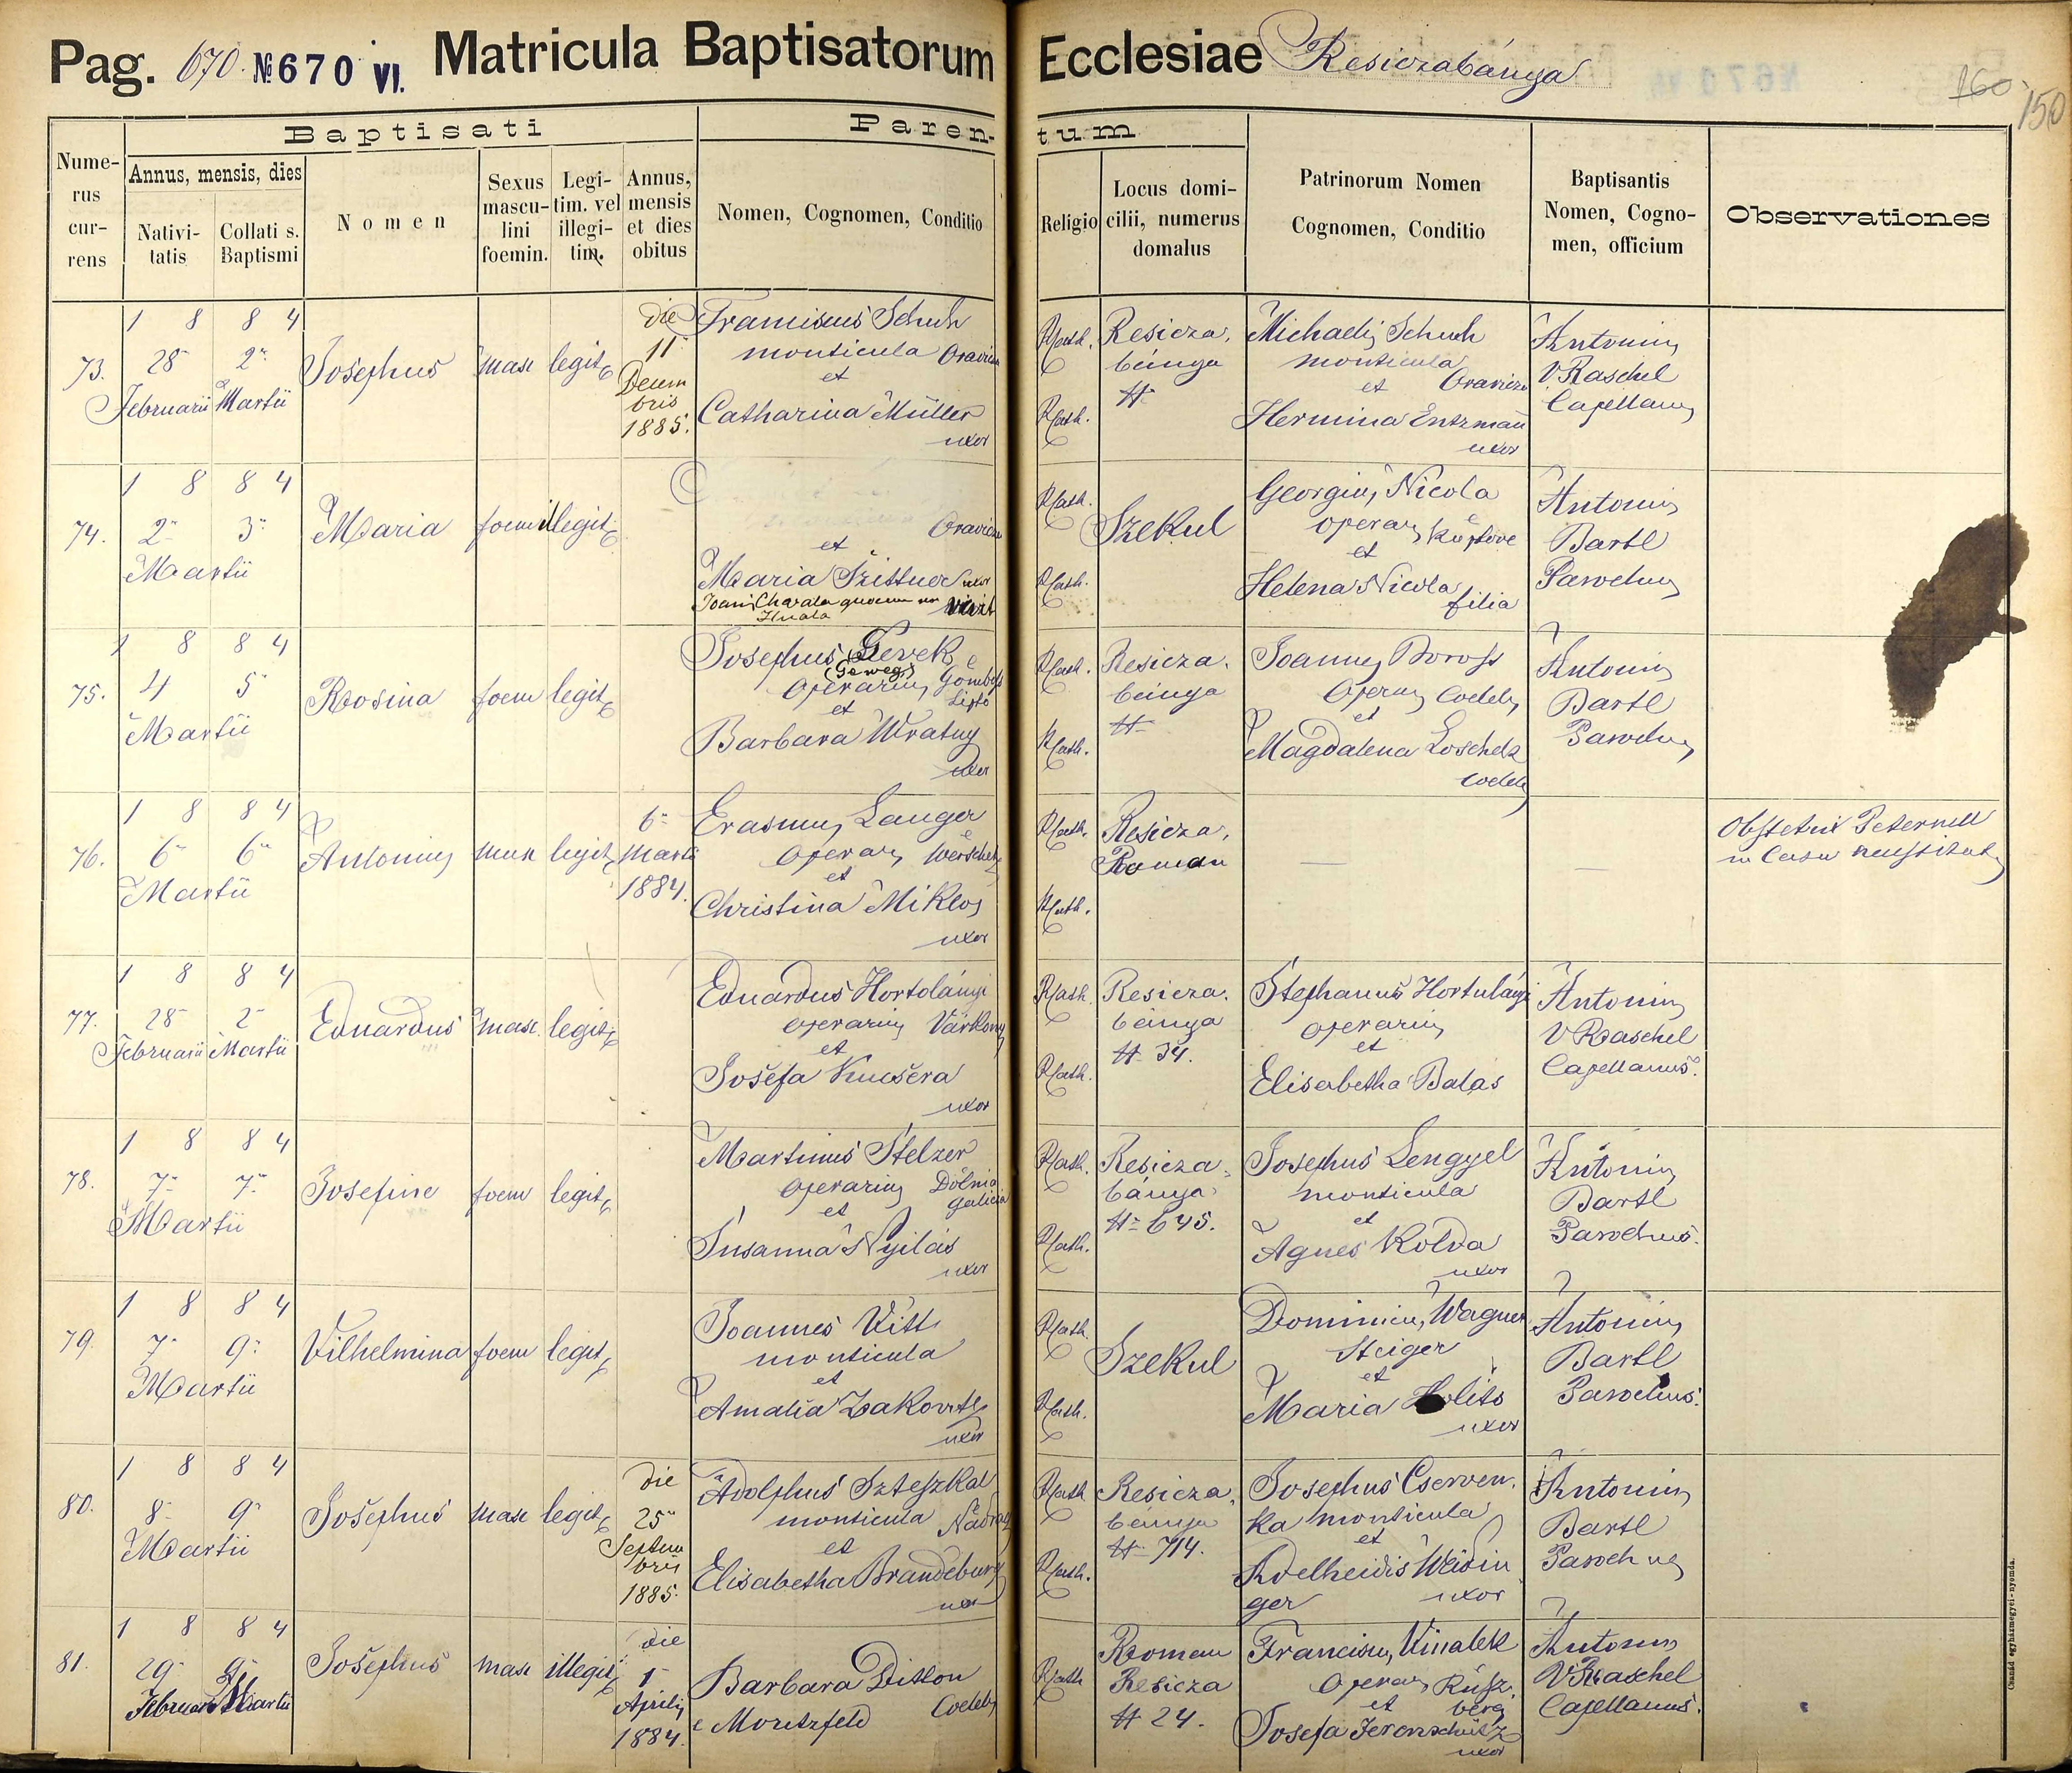 Pag. 670. № 670 VI. Matricula Baptisatorum Ecclesiae Resiczabánya
160 150
Baptisati
Parentum
Numerus currens
Annus, mensis, dies
Nativitatis
Collati s. Baptismi
Nomen
Sexus masculini foemin.
Legitim. vel illegitim.
Annus, mensis et dies obitus
Nomen, Cognomen, Conditio
Religio
Locus domicilii, numerus domalus
Patrinorum Nomen Cognomen, Conditio
Baptisantis Nomen, Cognomen, officium
Observationes
73.
1 8 8 4
28 2
Februarii Martii
Josephus
masc
legit
die
11
Decem
bris
1885.
Franciscus Schuh
monticula
et
Catharina Müller
uxor
R cath.
R cath.
Resicza.
bánya
#
Michaelis Schuh
monticula
et
Hermina Entzman
uxor
Antonius
V. Raschel
Capellanus
74.
1 8 8 4
2 3
Martii
Maria
foem
illegit
et
Maria
vivit
R cath.
R cath.
Szekul
Georgius Nicola
et
Helena Nicola
filia
Antonius
Bartl
Parochus
75.
1 8 8 4
4 5
Martii
Rosina
foem
legit
Josephus Gevek
(Geweg)
Operarius
et
Barbara Wratny
uxor
R cath.
R cath.
Resicza.
bánya
#
Joannes Boross
et
Magdalena
Antonius
Bartl
Parochus
76.
1 8 8 4
6 6
Martii
Antonius
legit
6
Martii
1884.
Erasmus Langer
et
Christina Miklos
uxor
R cath.
R cath.
Resicza.
Roman
—
—
Obstetrix Peternell
in Casu
77.
1 8 8 4
28 2
Februarii Martii
Eduardus
masc.
legit
Eduardus Hortolányi
operarius Várkony
et
Josefa Kucsera
uxor
R cath.
R cath.
Resicza.
bánya
# 34.
Stephanus Hortulányi
operarius
et
Elisabetha Balás
Antonius
V Raschel
Capellanus.
78.
1 8 8 4
7 7
Martii
Josefine
foem
legit
Martinus Stelzer
operarius
et
Susanna Nyilás
uxor
R cath.
R cath.
Resicza
bánya
# 645.
Josephus Lengyel
monticula
et
Agnes Kolda
uxor
Antonius
Bartl
Parochus.
79.
1 8 8 4
7 9
Martii
Vilhelmina
foem
legit
Joannes Vitt
monticula
et
Amalia
uxor
R cath.
R cath.
Szekul
Dominicus Wagner
Steiger
et
Maria
uxor
Antonius
Bartl
Parochus.
80.
1 8 8 4
8 9
Martii
Josephus
masc
legit
die
25
Septem
bris
1885.
Adolphus Szteszkal
monticula Nádrag
et
Elisabetha Brandeburg
R cath
R cath.
Resicza.
bánya
# 714.
Josephus Cserven
ka monticula
et
Adelheidis Weidin
ger uxor
Antonius
Bartl
Parochus
81.
1 8 8 4
29 9
Februarii Martii
Josephus
masc
illegit
die
1
Aprilis
1884.
Barbara Ditlon
e Moritzfeld
R cath
Roman
Resicza
# 24.
Franciscus
et
Josefa
uxor
Antonius
V Raschel
Capellanus.
Csanád egyházmegyei-nyomda.